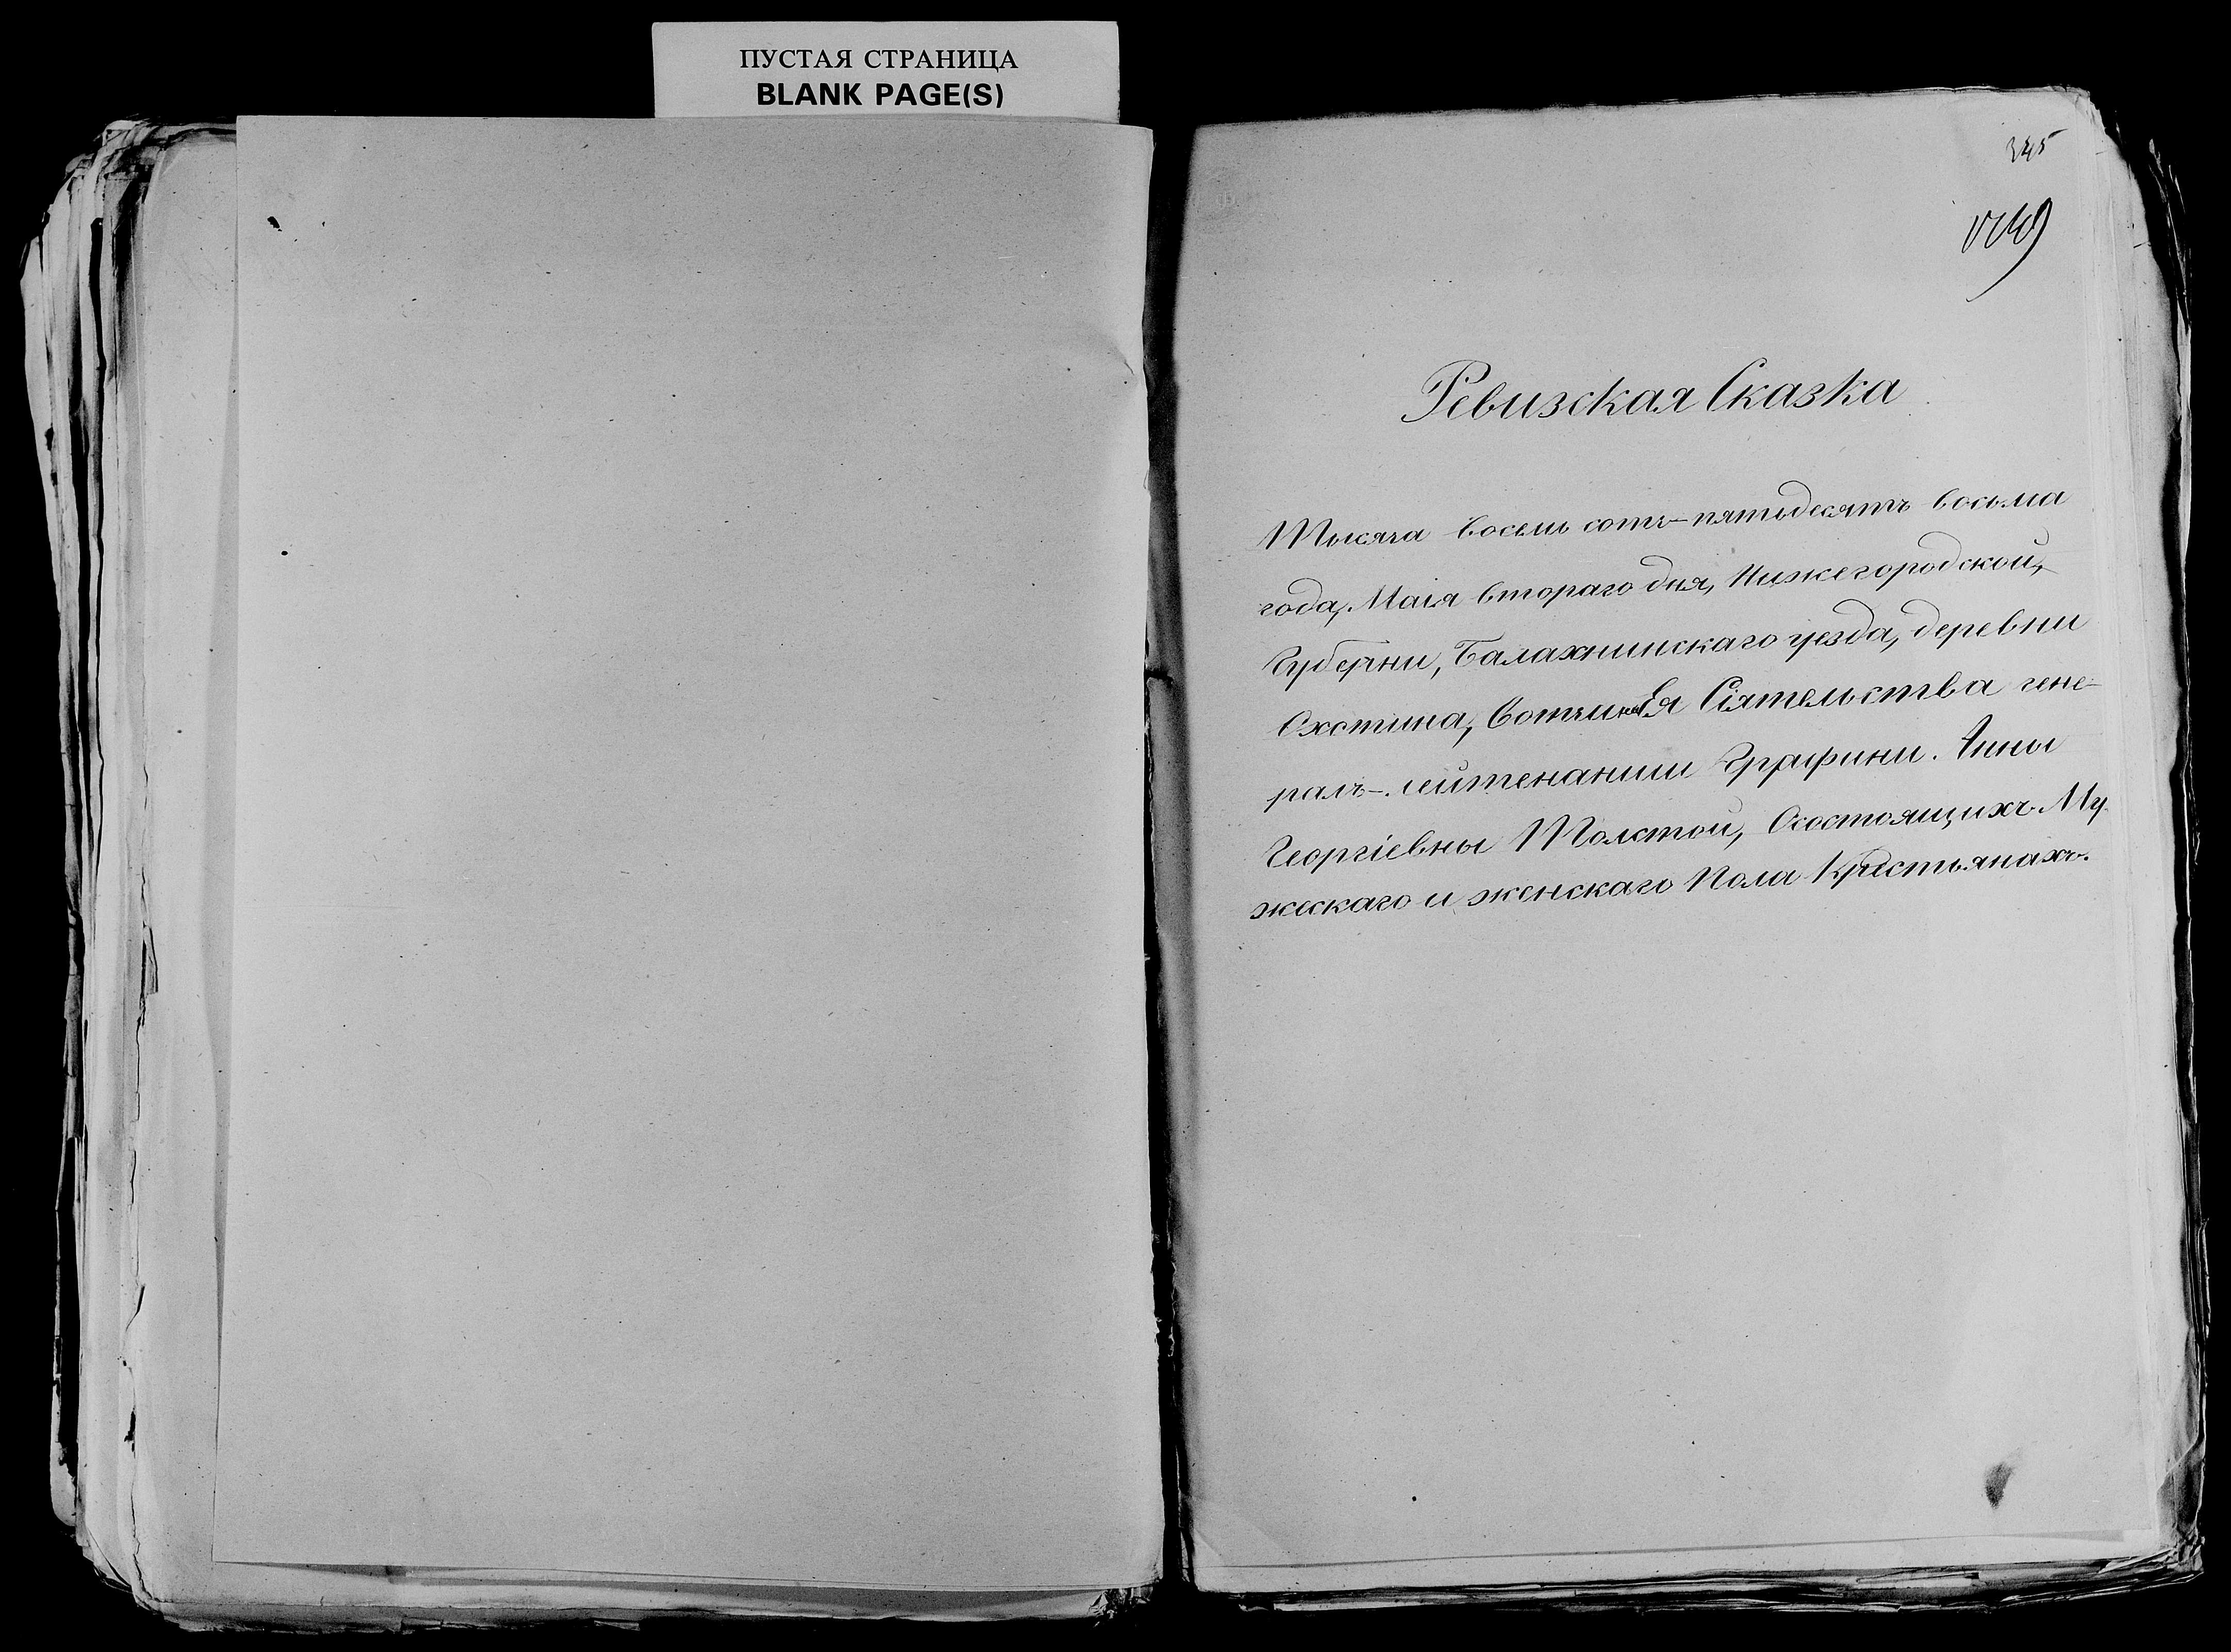 ПУСТАЯ СТРАНИЦА
BLANK PAGE(S)
345
Ревизская Сказка
Тысяча восемь сотъ-пятьдесятъ восьма
года, Маія втораго дня, Нижегородской,
Губерни, Балахнинскаго уезда, деревни
Охотина, Вотчины Ея Сіятельства гене-
ралъ-лейтенанши Графини. Анны
Георгіевны Толстой, Осостоящихъ Му-
жескаго и женскаго Пола Крестьянахъ.